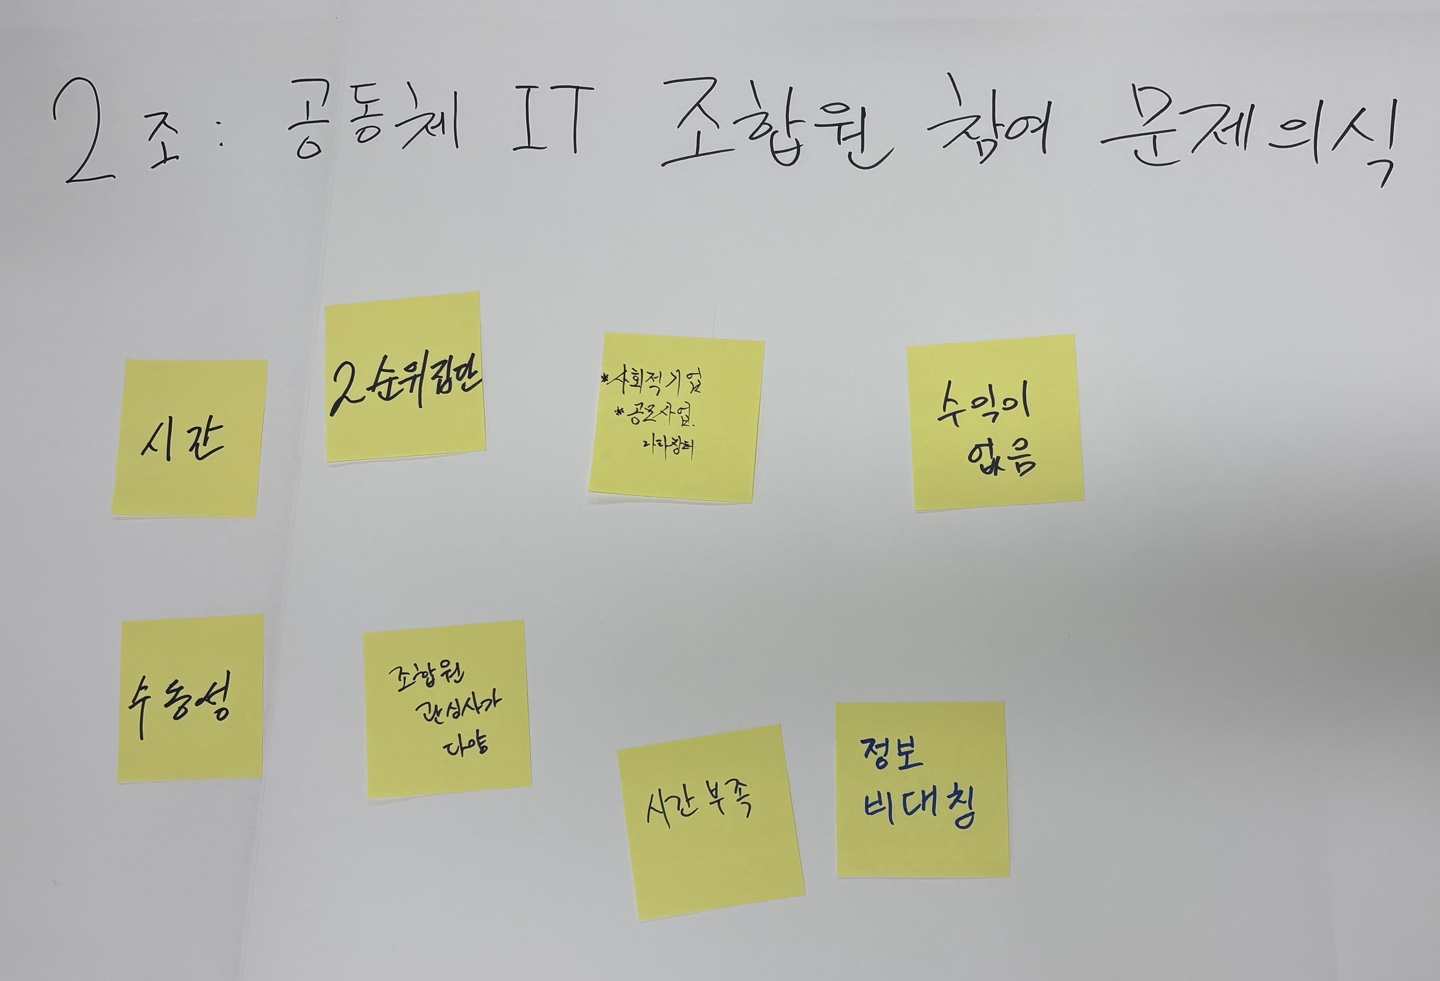 2조: 공동체 IT 조합원 참여 문제의식
시간
2순위집단
*사회적기업
*공모사업.
수익이
없음
수동성
조합원
관심사가
다양
시간부족
정보
비대칭